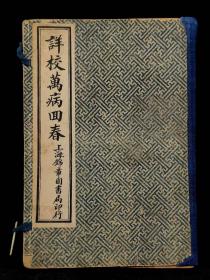 詳校萬病回春
上海錦章圖書局印行